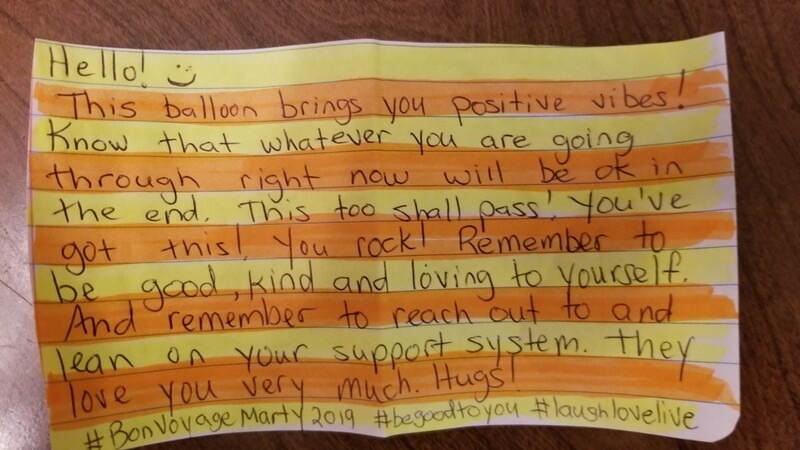 Hello! :)
This balloon brings you positive vibes!
Know that whatever you are going
through right now will be ok in
the end. This too shall pass! You've
got this! You rock! Remember to
be good, kind and loving to yourself.
And remember to reach out to and
lean on your support system. They
love you very much. Hugs!
#BonVoyageMarty2019 #begoodtoyou #laughlovelive